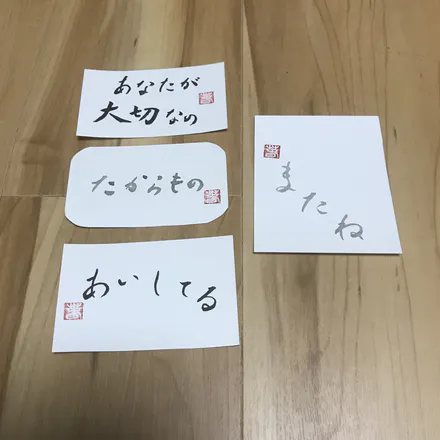 あなたが
大切なの
たからもの
あいしてる
またね